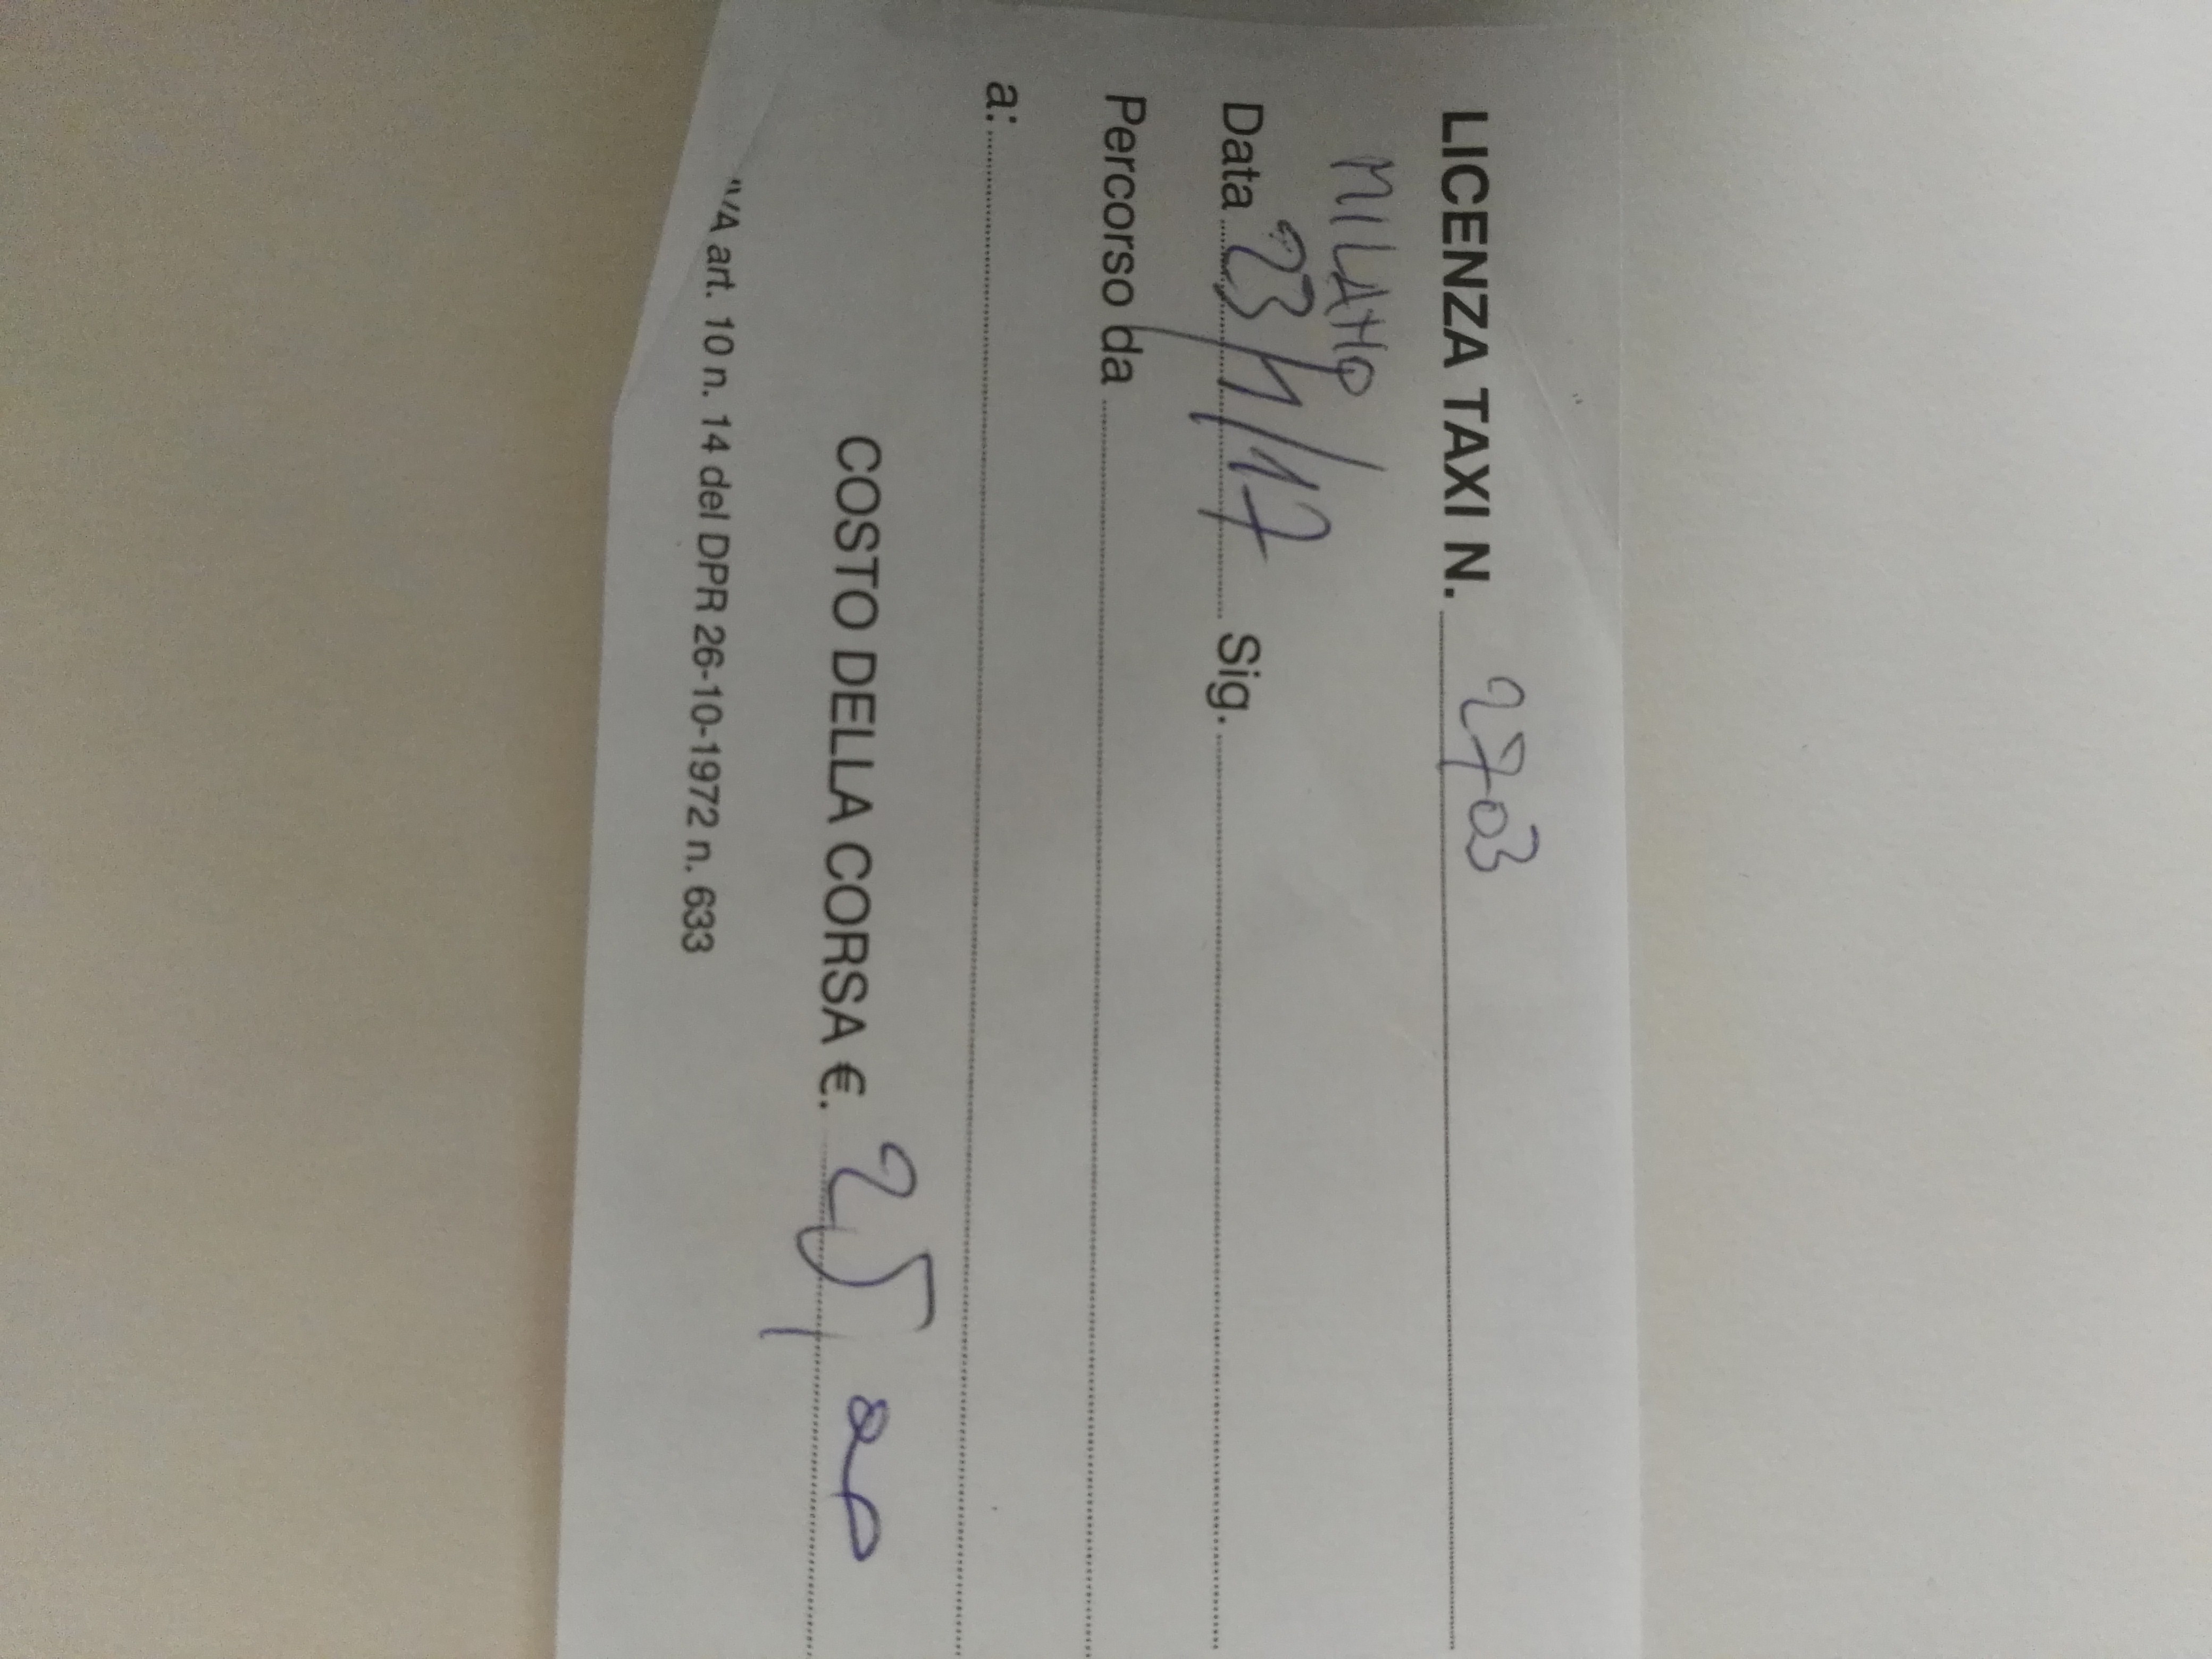 LICENZA TAXI N. 2703
MILANO
Data 23/11/17 Sig.
Percorso da
a:
COSTO DELLA CORSA €. 25,00
IVA art. 10 n. 14 del DPR 26-10-1972 n. 633